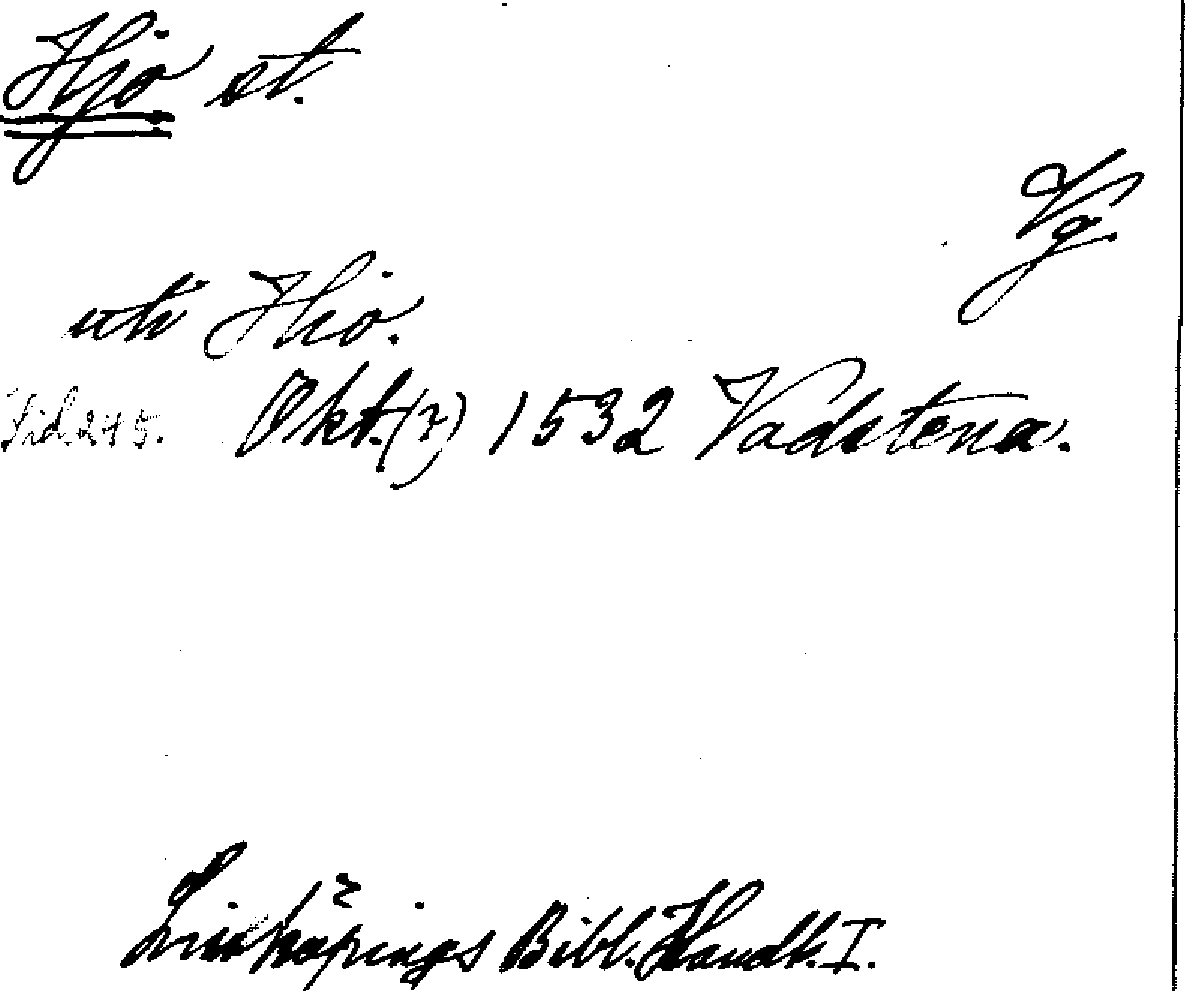 Hjo st.
Vg.
uti Hio.
Sid. 245. Okt. (?) 1532 Vadstena.
Linköpings Bibl. Handl. I.